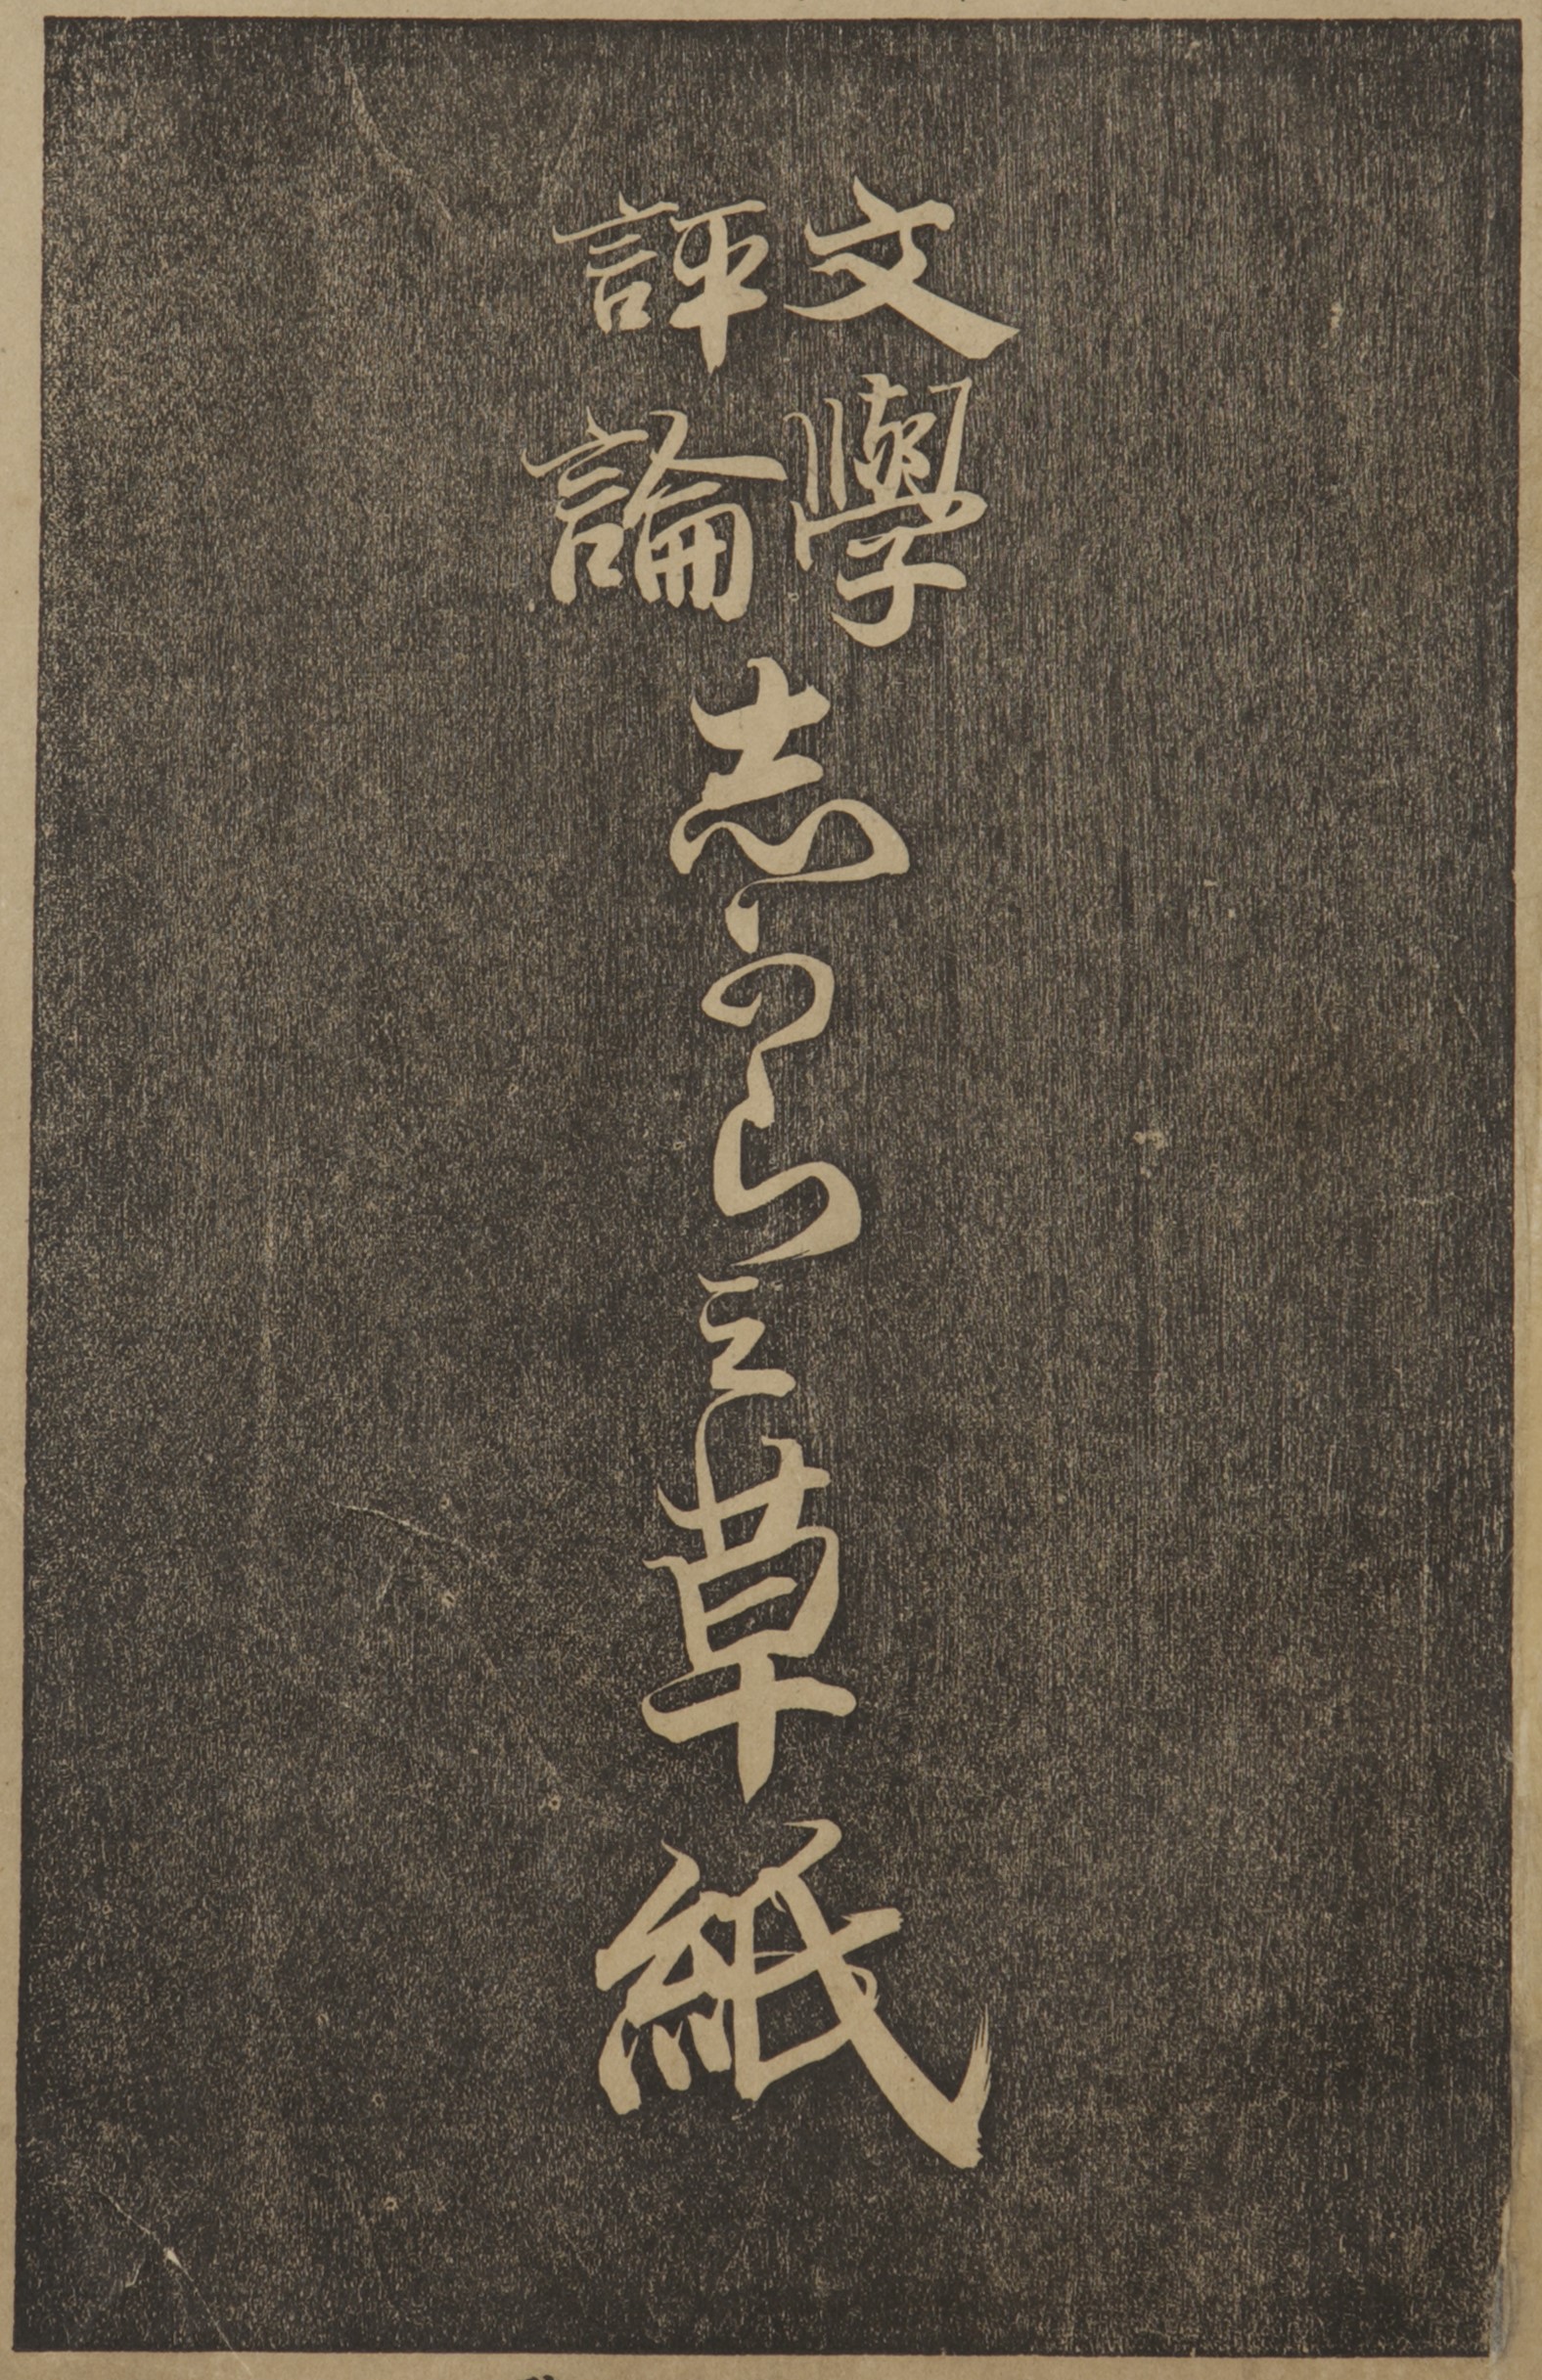 文學
評論
志からみ草紙